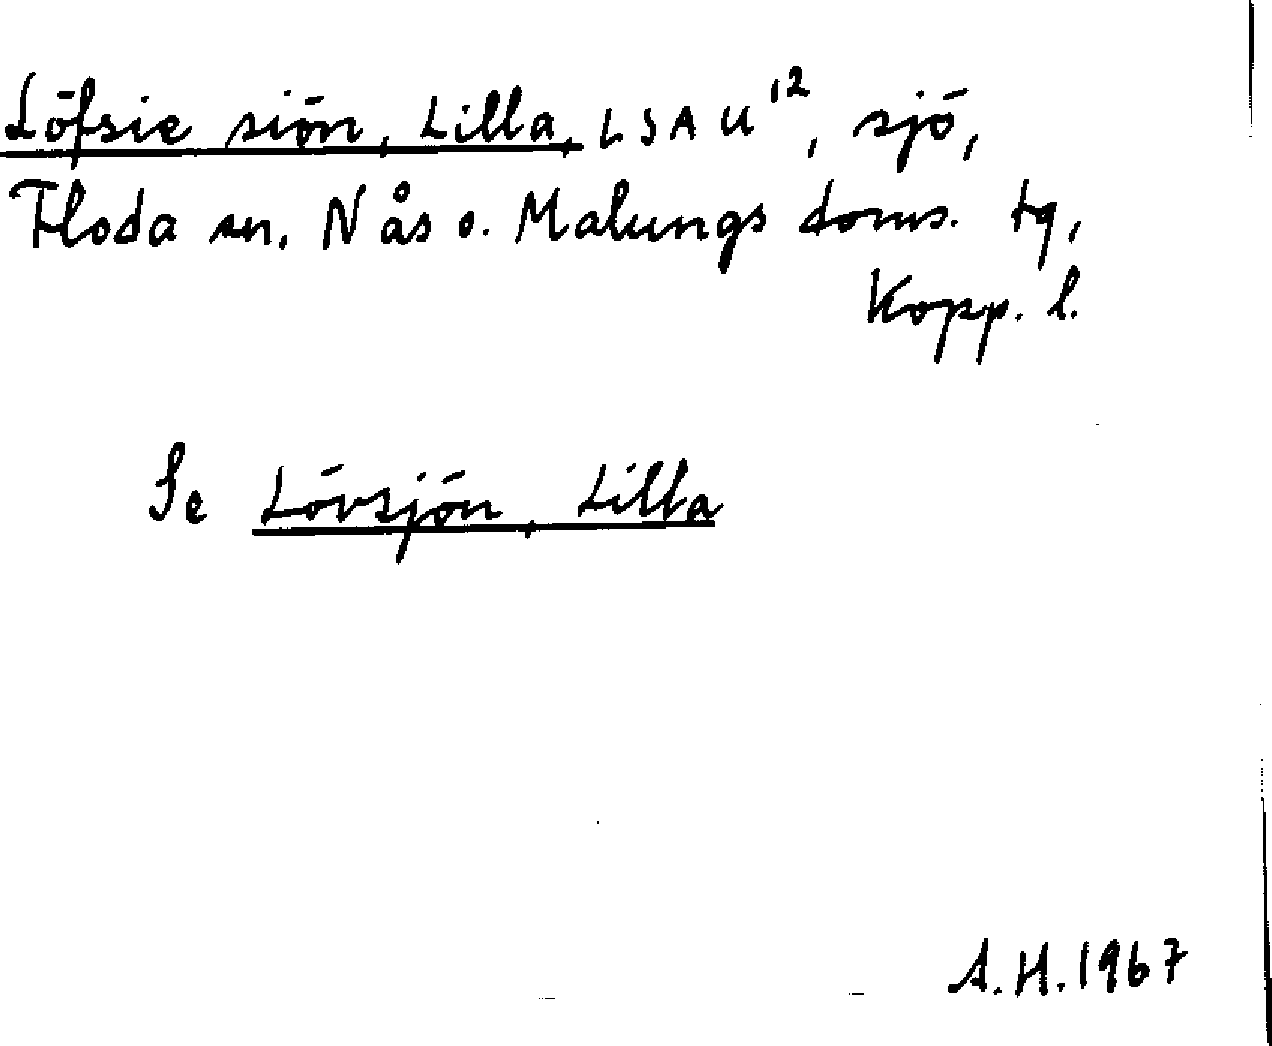 Löfsie siön, Lilla, LSA U'², sjö,
Floda sn, Nås o. Malungs doms. tg,
Kopp. l.
Se Lövsjön, Lilla
A.H. 1967